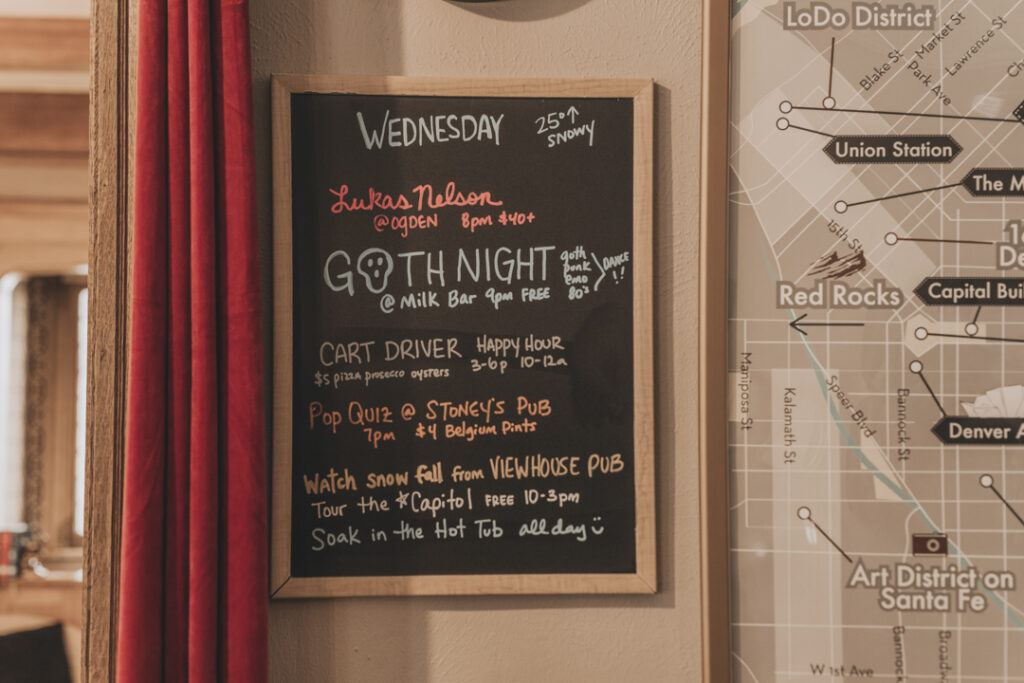 WEDNESDAY
25°↑
SNOWY
Lukas Nelson
@OGDEN 8pm $40+
GOTH NIGHT
goth
punk
emo
80's
DANCE
!!
@ Milk Bar 9pm FREE
CART DRIVER HAPPY HOUR
$5 pizza prosecco oysters 3-6p 10-12a
Pop Quiz @ STONEY'S PUB
7pm $4 Belgium Pints
Watch snow fall from VIEWHOUSE PUB
Tour the ☆Capitol FREE 10-3pm
Soak in the Hot Tub all day
LoDo District
Market St
Lawrence St
Blake St
Park Ave
Union Station
The M
15th St
Red Rocks
Capital Bui
Mariposa St
Kalamath St
Speer Blvd
Bannock St
Denver A
Art District on
Santa Fe
Bannoc
Broadw
W 1st Ave